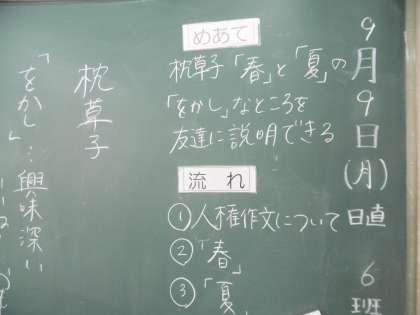 9月9日(月)
日直 6班
めあて
枕草子「春」と「夏」の
「をかし」なところを
友達に説明できる
流れ
①人権作文について
②「春」
③「夏」
枕草子
「をかし」…興味深い